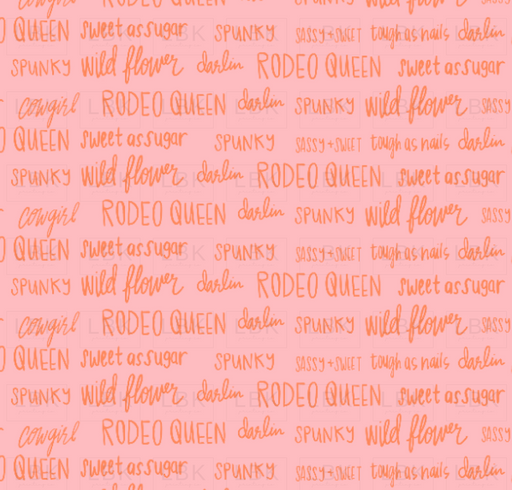 cowgirl wild flower
QUEEN sweet as sugar SPUNKY SASSY + SWEET tough as nails darlin
SPUNKY wild flower darlin RODEO QUEEN sweet as sugar
cowgirl RODEO QUEEN darlin SPUNKY wild flower SASSY
QUEEN sweet as sugar SPUNKY SASSY + SWEET tough as nails darlin
SPUNKY wild flower darlin RODEO QUEEN sweet as sugar
cowgirl RODEO QUEEN darlin SPUNKY wild flower SASSY
QUEEN sweet as sugar SPUNKY SASSY + SWEET tough as nails darlin
SPUNKY wild flower darlin RODEO QUEEN sweet as sugar
cowgirl RODEO QUEEN darlin SPUNKY wild flower SASSY
QUEEN sweet as sugar SPUNKY SASSY + SWEET tough as nails darlin
SPUNKY wild flower darlin RODEO QUEEN sweet as sugar
cowgirl RODEO QUEEN darlin SPUNKY wild flower SASSY
QUEEN sweet as sugar SPUNKY SASSY + SWEET tough as nails darlin